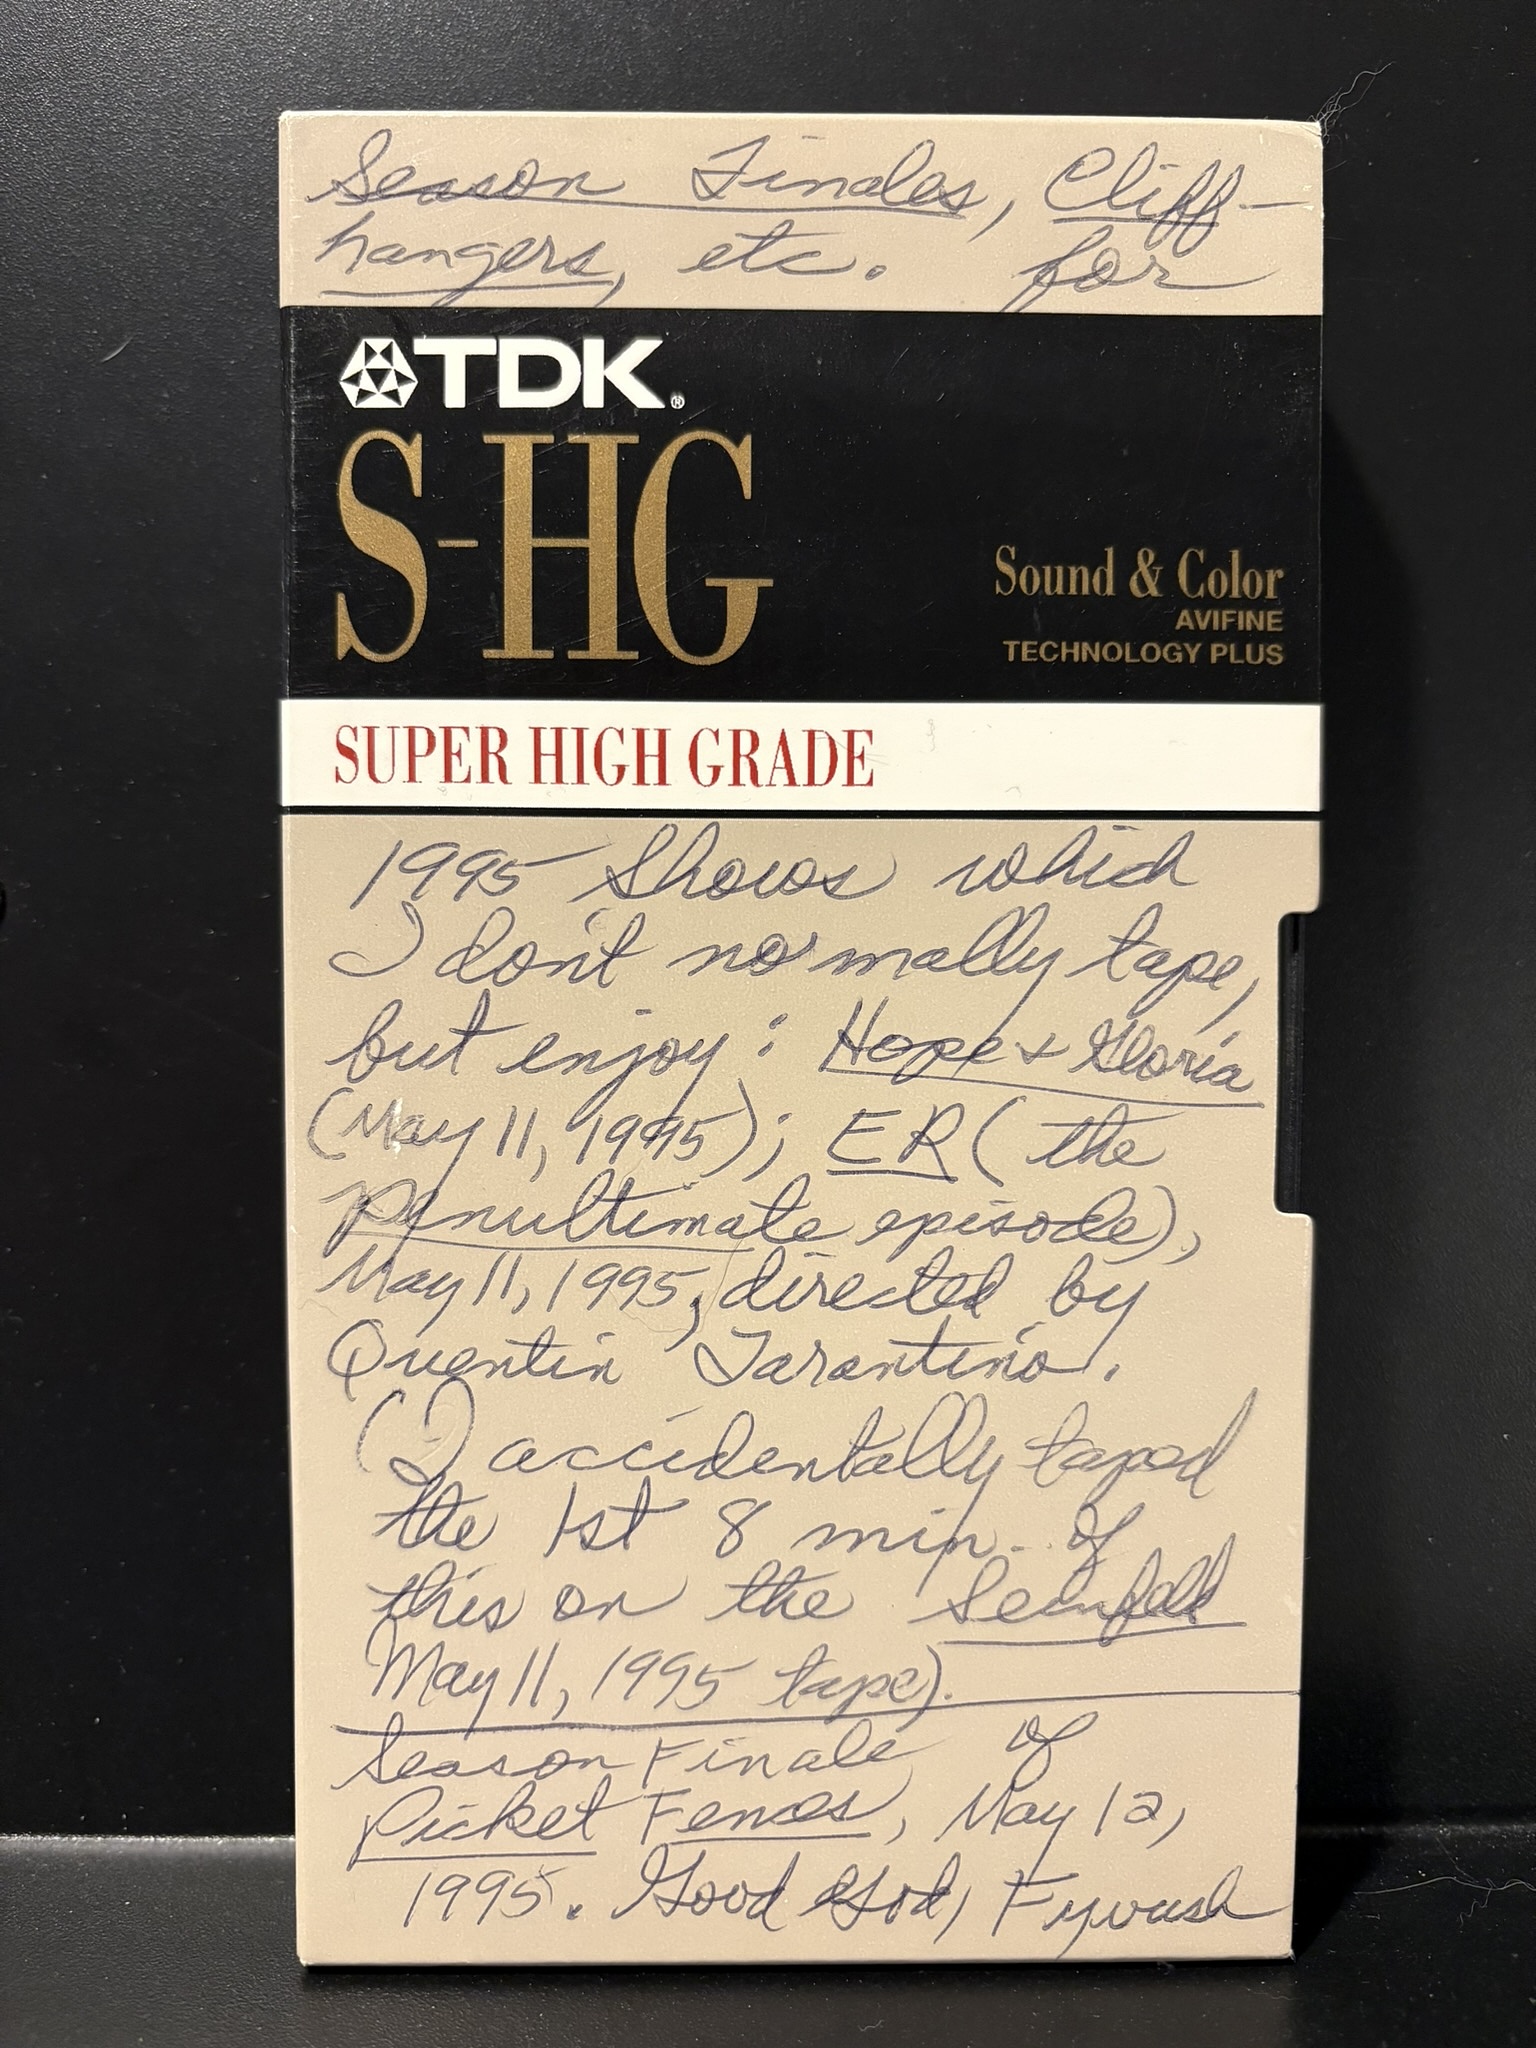 Season Finales, Cliff-
hangers, etc. for
TDK®
S-HG
Sound & Color
AVIFINE
TECHNOLOGY PLUS
SUPER HIGH GRADE
1995 Shows which
I don't normally tape,
but enjoy: Hope + Gloria
(May 11, 1995); ER (the
Penultimate episode),
May 11, 1995, directed by
Quentin Tarantino.
(I accidentally taped
the 1st 8 min. of
this on the Seinfeld
May 11, 1995 tape).
Season Finale of
Picket Fences, May 12,
1995. Good God, Fyvush